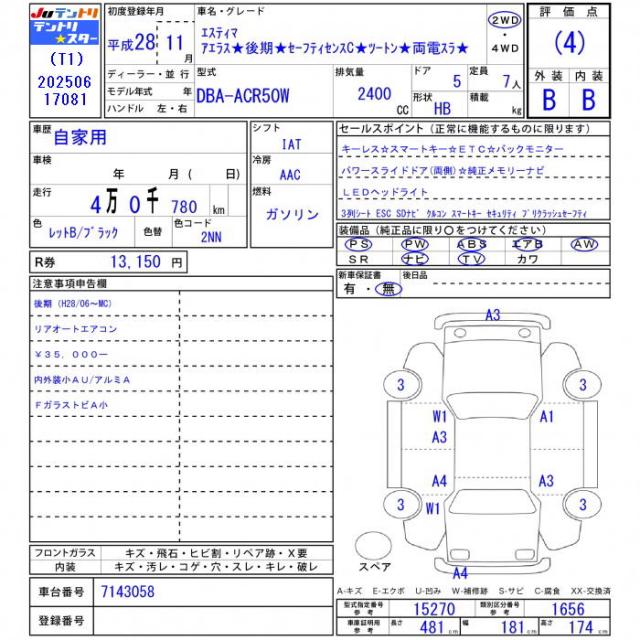 JUテントリ
テントリ
★スター
(T1)
202506
17081
初度登録年月
平成28 11月
ディーラー・並行
モデル年式 年
ハンドル 左・右
車名・グレード
エスティマ
アエラス★後期★セーフティセンスC★ツートン★両電スラ★
2WD
・
4WD
型式
DBA-ACR50W
排気量
2400
CC
ドア
5
定員
7人
形状
HB
積載
kg
評価点
(4)
外装 内装
B B
車歴
自家用
車検
年 月( 日)
走行
4万0千780 km
色
レットB/ブラック
色替
色コード
2NN
シフト
IAT
冷房
AAC
燃料
ガソリン
R券 13,150 円
セールスポイント(正常に機能するものに限ります)
キーレス☆スマートキー☆ETC☆バックモニター
パワースライドドア(両側)☆純正メモリーナビ
LEDヘッドライト
3列シート ESC SDナビ クルコン スマートキー セキュリティ プリクラッシュセーフティ
装備品(純正品に限り○をつけてください)
PS PW ABS エアB AW
SR ナビ TV カワ
新車保証書
有・無
後日品
注意事項申告欄
後期(H28/06～MC)
リアオートエアコン
¥35,000ー
内外装小AU/アルミA
FガラストビA小
フロントガラス キズ・飛石・ヒビ割・リペア跡・X要
内装 キズ・汚レ・コゲ・穴・スレ・キレ・破レ
車台番号 7143058
登録番号
A3
3 3
W1 A1
A3
A4 A3
3 W1 3
スペア
A4
A-キズ E-エクボ U-凹み W-補修跡 S-サビ C-腐食 XX-交換済
型式指定番号
参考
15270
類別区分番号
参考
1656
車庫証明用
参考
長さ 481 cm 幅 181 cm 高さ 174 cm